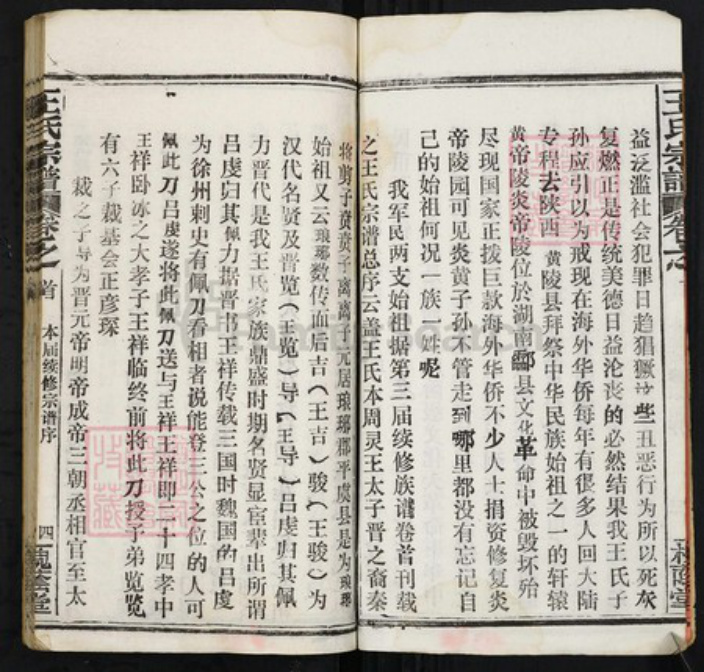 王氏宗譜 卷之
益泛滥社会犯罪日趋猖獗这些丑恶行为所以死灰
复燃正是传统美德日益沦丧的必然结果我王氏子
孙应引以为戒现在海外华侨每年有很多人回大陆
专程去陕西 黄陵县拜祭中华民族始祖之一的轩辕
黄帝陵炎帝陵位於湖南酃县文化革命中被毁坏殆
尽现国家正拨巨款海外华侨不少人士捐资修复炎
帝陵园可见炎黄子孙不管走到哪里都没有忘记自
己的始祖何况一族一姓呢
我军民两支始祖据第三届续修族谱卷首刊载
之王氏宗谱总序云盖王氏本周灵王太子晋之裔秦
槐蔭堂
将剪子贲贲子离离子元居琅琊郡平虞县是为琅琊
始祖又云琅琊数传而后吉（王吉）骏（王骏）为
汉代名贤及晋览（王览）导（王导）吕虔归其佩
刀晋代是我王氏家族鼎盛时期名贤显宦辈出所谓
吕虔归其佩刀据晋书王祥传载三国时魏国的吕虔
为徐州刺史有佩刀看相者说能登三公之位的人可
佩此刀吕虔遂将此佩刀送与王祥王祥即二十四孝中
王祥卧冰之大孝子王祥临终前将此刀授予弟览览
有六子裁基会正彦琛
裁之子导为晋元帝明帝成帝三朝丞相官至太
王氏宗譜 卷之 首 本届续修宗谱序 四 槐蔭堂